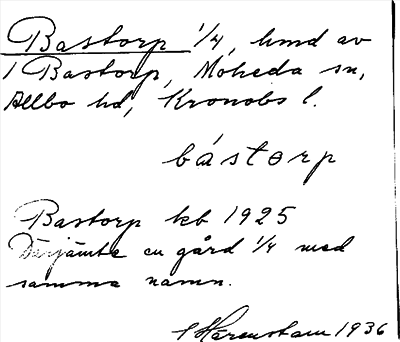 Bastorp 1/4, hmd av
1 Bastorp, Moheda sn,
Allbo hd, Kronobs l.
bástorp
Bastorp kb 1925
Därjämte en gård 1/4 med
samma namn.
1936